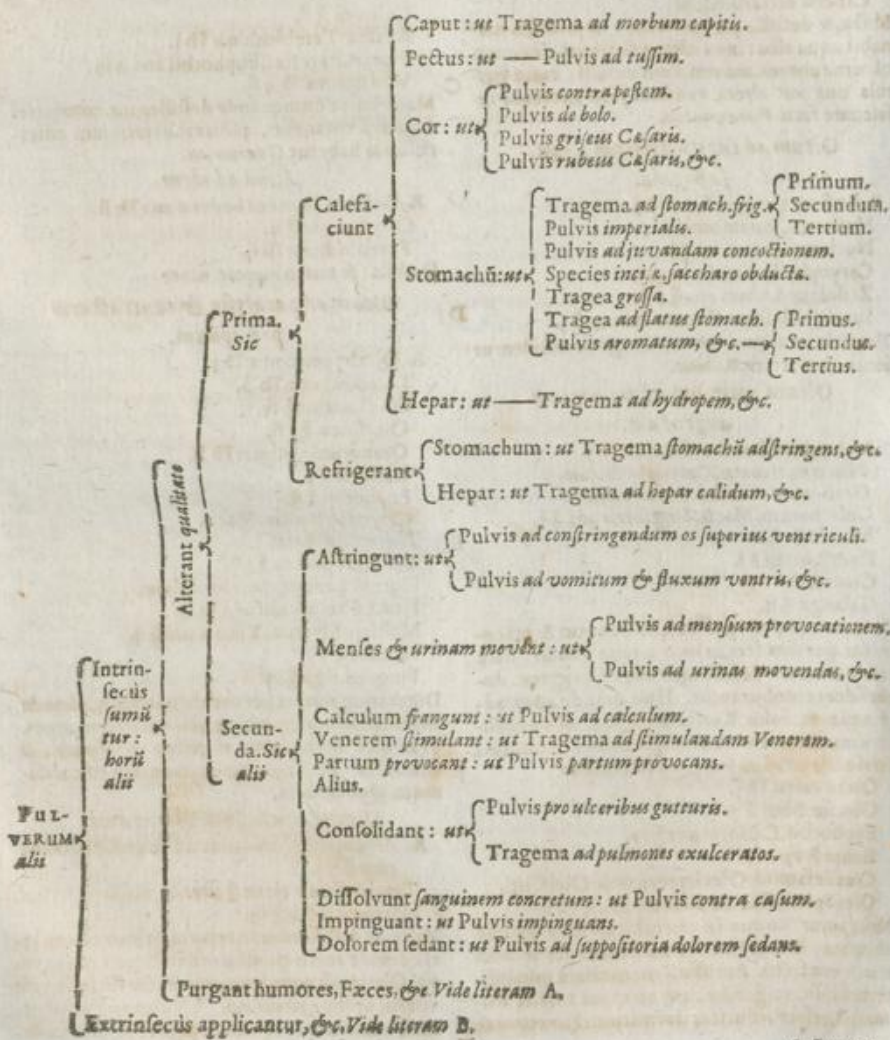 Caput: ut Tragema ad morbum capitis.
Pectus: ut — Pulvis ad tuſſim.
Cor: ut
Pulvis contra peſtem.
Pulvis de bolo.
Pulvis griſeus Cæſaris.
Pulvis rubeus Cæſaris, &c.
Calefa-
ciunt
Stomachū: ut
Tragema ad ſtomach. frig.
Primum.
Secundum.
Tertium.
Pulvis imperialis.
Pulvis ad juvandam concoctionem.
Species inciſæ ſaccharo obductæ.
Tragea groſſa.
Tragea ad flatus ſtomach.
Pulvis aromatum, &c. —
Primus.
Secundus.
Tertius.
Hepar: ut — Tragema ad hydropem, &c.
Prima.
Sic
Refrigerant
Stomachum: ut Tragema ſtomachū adſtringens, &c.
Hepar: ut Tragema ad hepar calidum, &c.
Alterant qualitate
Aſtringunt: ut
Pulvis ad conſtringendum os ſuperius ventriculi.
Pulvis ad vomitum & fluxum ventris, &c.
Menſes & urinam movēt: ut
Pulvis ad menſium provocationem.
Pulvis ad urinas movendas, &c.
Intrin-
ſecùs
ſumū
tur:
horū
alii
Secun-
da. Sic
aliis
Calculum frangunt: ut Pulvis ad calculum.
Venerem ſtimulant: ut Tragema ad ſtimulandam Venerem.
Partum provocant: ut Pulvis partum provocans.
Alius.
Conſolidant: ut
Pulvis pro ulceribus gutturis.
Tragema ad pulmones exulceratos.
PUL-
VERUM
alii
Diſſolvunt ſanguinem concretum: ut Pulvis contra caſum.
Impinguant: ut Pulvis impinguans.
Dolorem ſedant: ut Pulvis ad ſuppoſitoria dolorem ſedans.
Purgant humores, Fæces, &c Vide literam A.
Extrinſecùs applicantur, &c, Vide literam B.